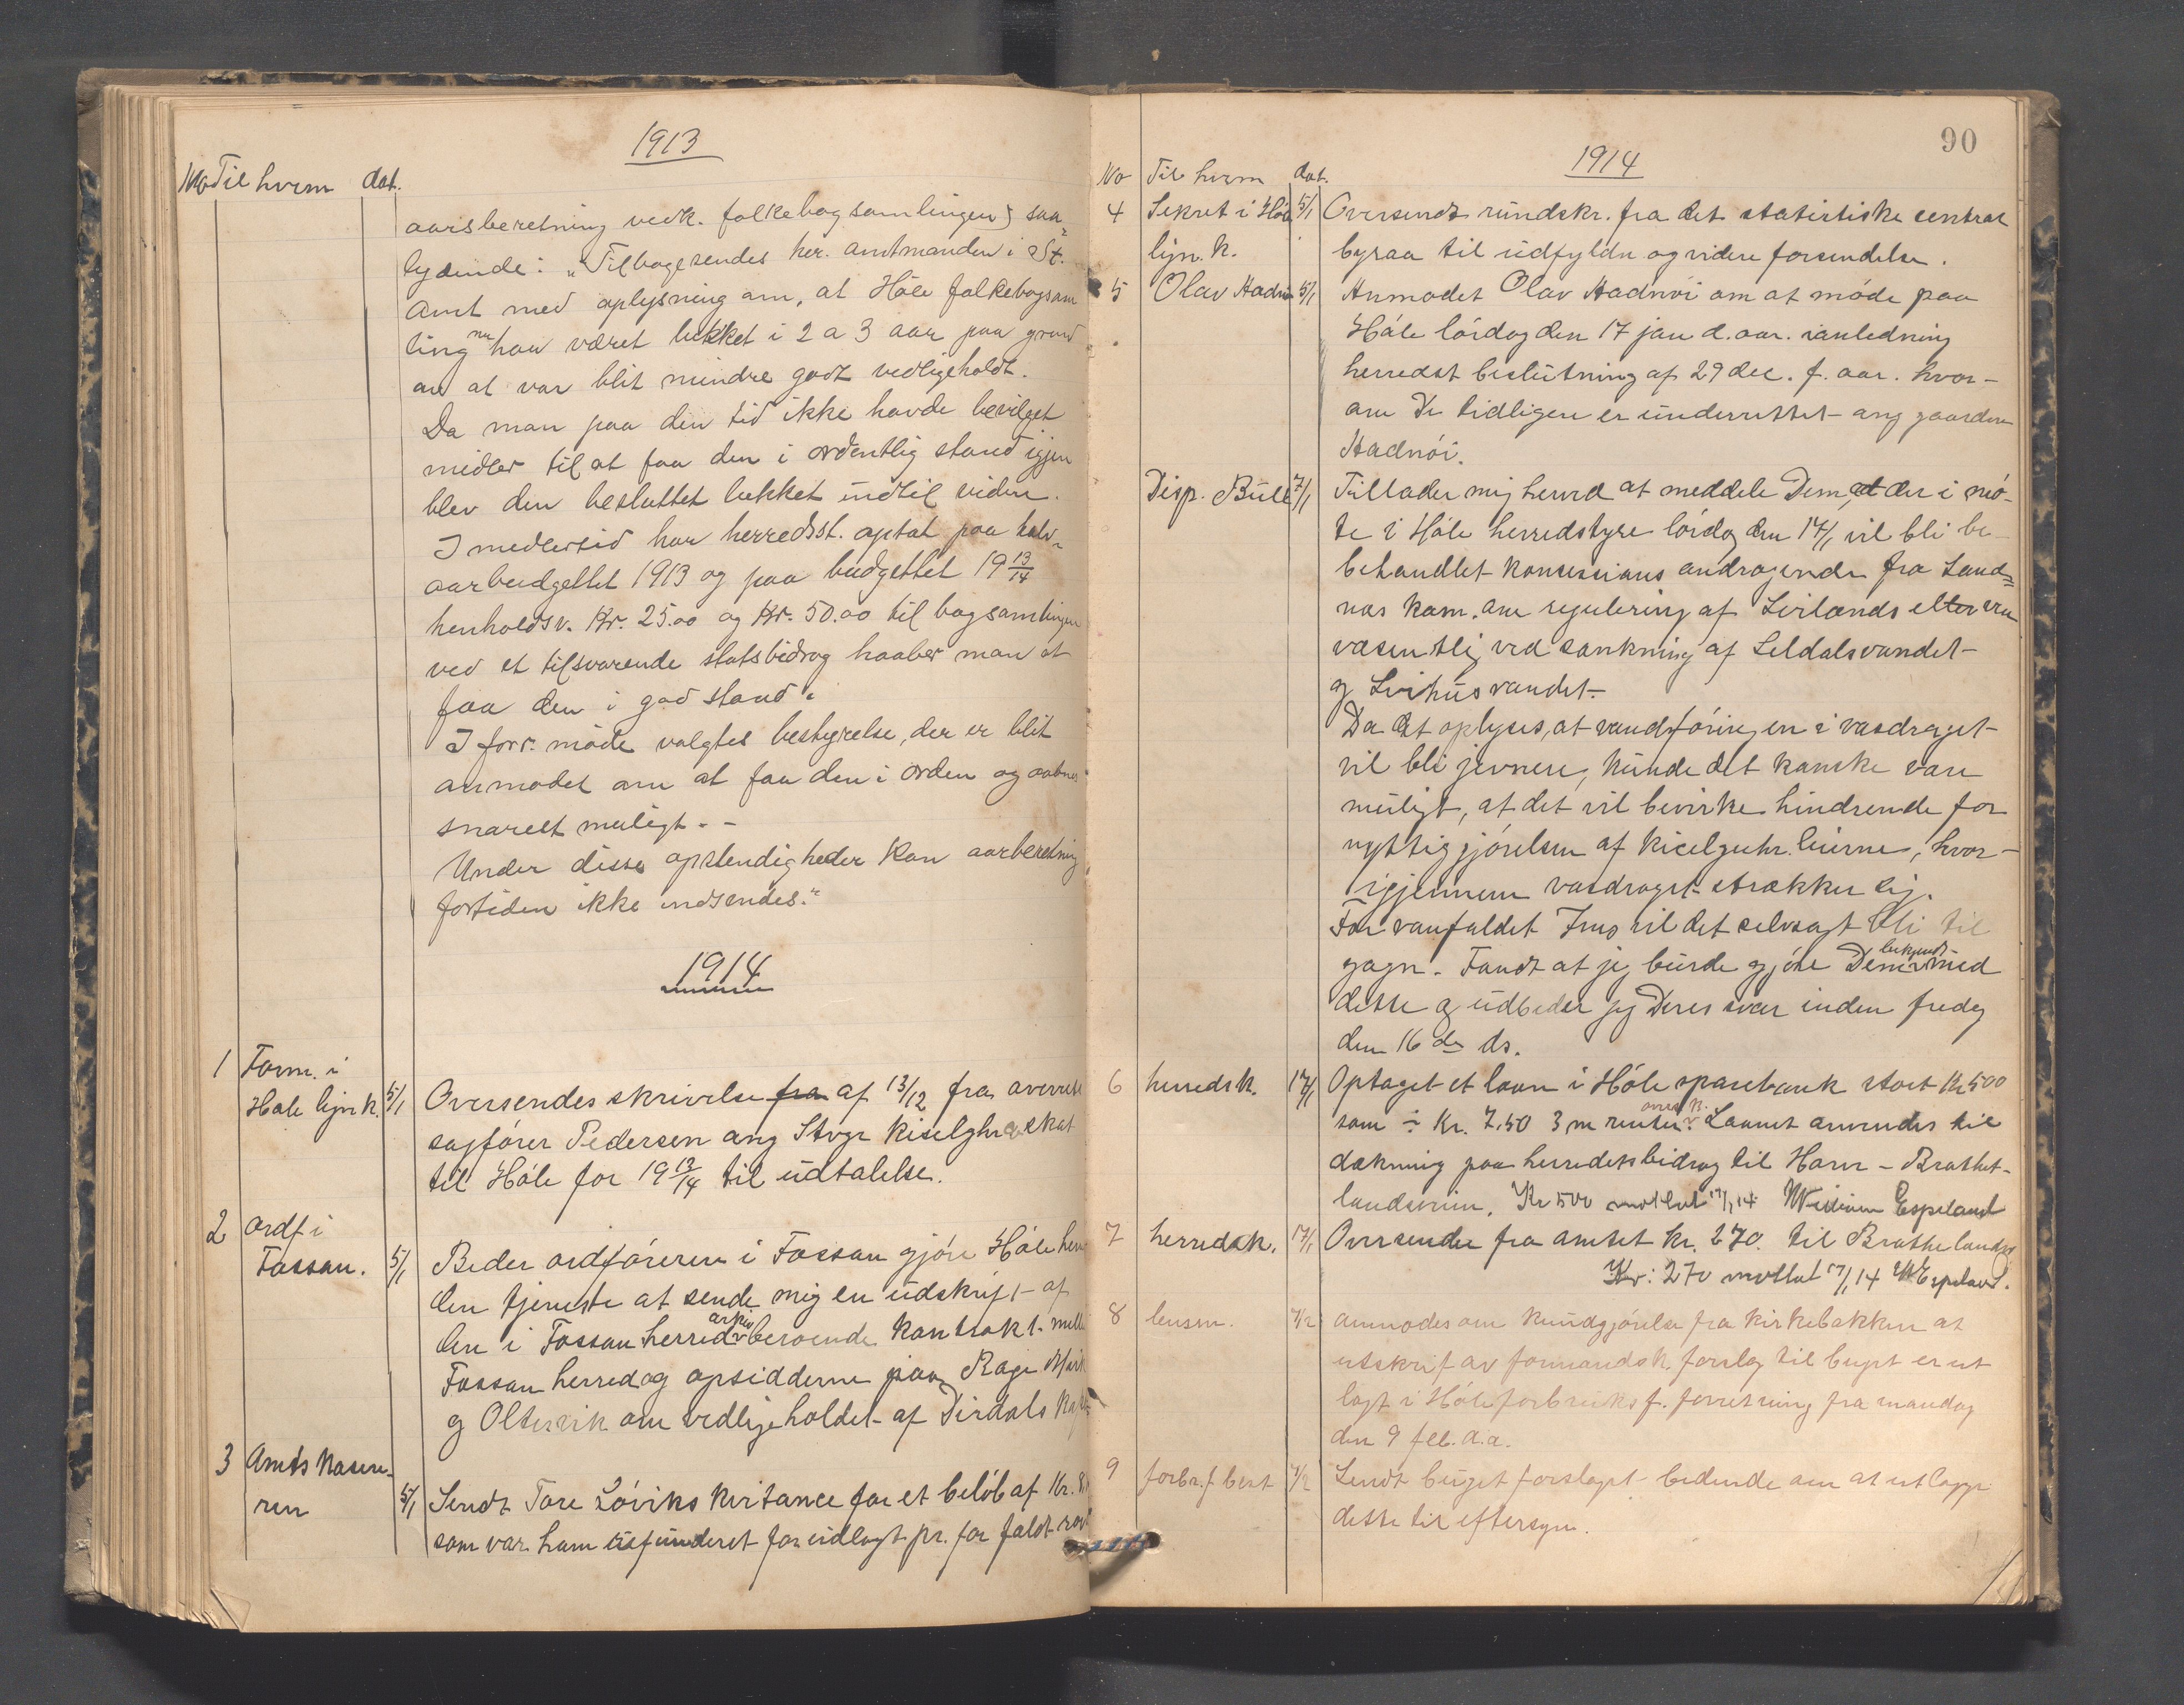 1913
No Til hvem dat.
aarsberetning vedk. folkebogsamlingen; saa-
lydende: "Tilbagesendes hr. amtmanden i St.
Amt med oplysning om, at Höle folkebogsam
ling nu har været lukket i 2 a 3 aar paa grund
av at var blit mindre godt vedligeholdt.
Da man paa den tid ikke havde bevilget
midler til at faa den i ordentlig stand igjen
blev den besluttet lukket indtil viden.
Imedlertid har herredsst. optat paa halv-
aarbudgettet 1913 og paa budgettet 19 13/14
henholdsv. Kr. 25.00 og Kr. 50.00 til bogsamlingen
ved et tilsvarende statsbidrag haaber man at
faa den i god stand.
I forr. møde valgtes bestyrelse, der er blit
anmodet om at faa den i orden og aabnes
snarest muligt. -
Under disse opstendigheder kan aarberetning
fortiden ikke indsendes."
1914
1 Form. i
Høle lign k. 5/1 Oversendes skrivelse fra af 13/12 fra overrets
sagfører Pedersen ang Stvgr Kiselghr skat
til Höle for 19 13/14 til üdtalelse.
2 ordf i
Fossan. 5/1 Beder ordføreren i Fossan gjöre Höle herred
den tjeneste at sende mig en üdskrift af
den i Fossan herreds arkiv beroende kontrakt mell
Fossan herred og opsidderne paa Rage
og Oltesvik om vedligeholdet af Dirdals
3 Amtskasere-
ren 5/1 Sendt Tore Löviks kvitance for et belöb af Kr. 8
som var ham refünderet for üdlagt pr. for faldt
90
1914
No Til hvem dat.
4 Sekret i Höle 5/1 Oversendt ründskr. fra det statistiske sentral
lign. k. byraa til üdfyldn og videre forsendelse.
5 Olav Hadnöi 5/1 Anmodet Olav Hadnöi om at möde paa
Höle lördag den 17 jan d. aar. ianledning
herredst beslütning af 29 dec. f. aar. hvor-
om De tidligere er ünderrettet ang gaarden
Hadnöi.
Disp. Büll 7/1 Tillader mig herved at meddele Dem, at der i mö-
te i Höle herredstyre lördag den 17/1 vil bli be-
behandlet konsessions andragende fra Sand-
nes kom. om regulering af Svilands elven
væsentlig ved sænkning af Seldalsvandet
og Svihüsvandet.
Da det oplyses, at vandføringen i vasdraget
vil bli jevnere, künde det kanske være
müligt, at det vil bevirke hindrende for
nyttiggjörelsen af kicelguhr leierne, hvor-
igjennem vasdraget strækker sig.
For vanfaldet Ims vil det selvsagt bli til
gagn. Fandt at jeg bürde gjöre Dem bekjendt med
dette og üdbeder jeg Deres svar inden fredag
den 16 de ds.
6 herredsk. 17/1 Optaget et laan i Höle sparebank stort Kr 500
som ÷ Kr. 7.50 3 m renter. Laanet anvendes til
dækning paa herredets bidrag til Harv - Brathet-
landsveien. Kr 500 mottat 17/1 14 Espeland
7 herredsk. 17/1 Oversendes fra amtet kr. 270. til Brathelandsv
Kr: 270 mottat 17/1 14 Espeland.
8 lensm. 7/2 anmodes om kündgjörelse fra kirkebakken at
utskrif av formandsk. forslag til buget er ut
lagt i Höle forbrüks f. forretning fra mandag
den 9 feb. d.a.
9 forbr. f best 7/2 Sendt büget forslaget bedende om at utlægge
dette til eftersyn.